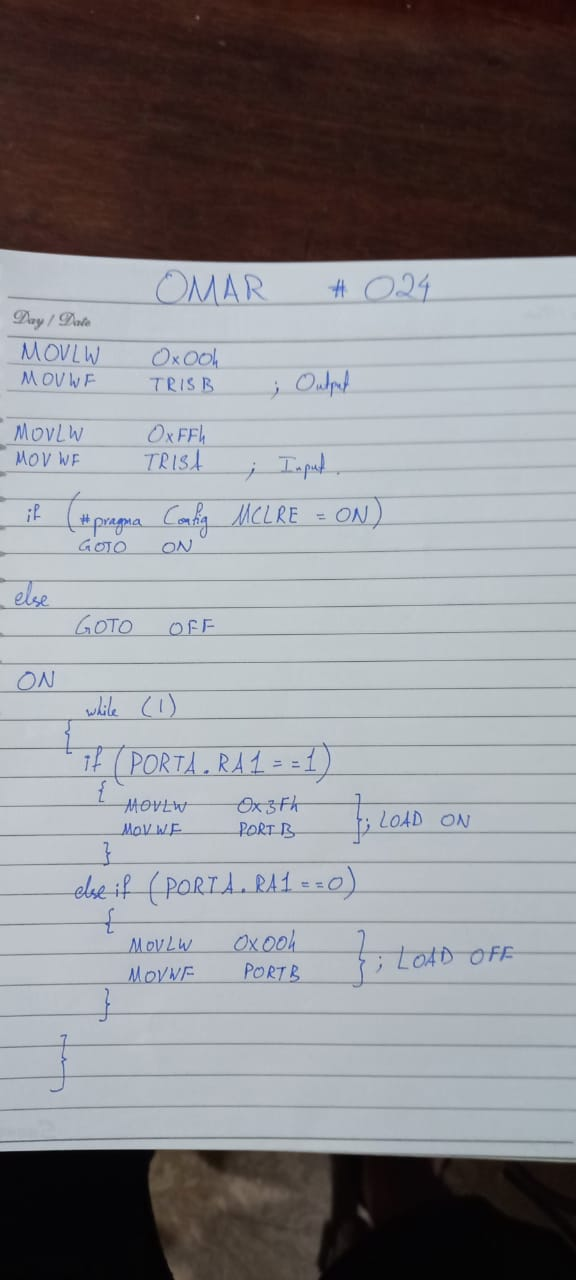 OMAR # 024
Day / Date
MOVLW 0x00h
MOVWF TRISB ; Output
MOVLW 0xFFh
MOVWF TRISA ; Input.
if (#pragma Config MCLRE = ON)
GOTO ON
else
GOTO OFF
ON
while (1)
{
if (PORTA.RA1==1)
{
MOVLW 0x3Fh
MOVWF PORTB }; LOAD ON
}
else if (PORTA.RA1==0)
{
MOVLW 0x00h
MOVWF PORTB }; LOAD OFF
}
}